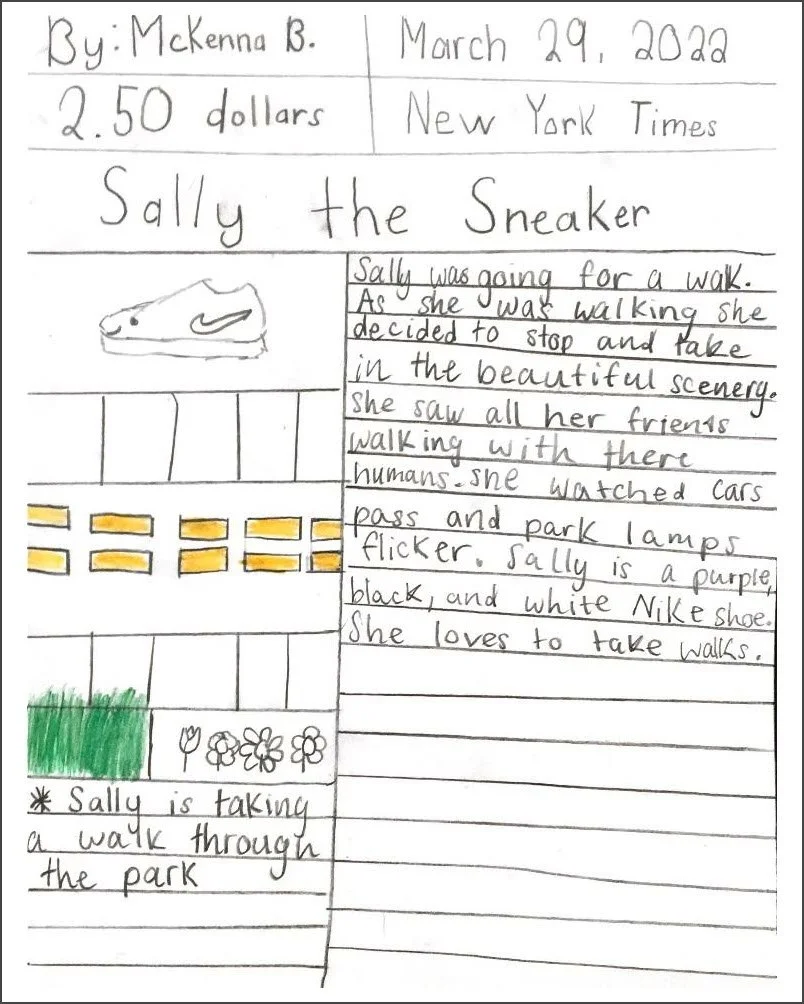 By: McKenna B.
March 29, 2022
2.50 dollars
New York Times
Sally the Sneaker
Sally was going for a wak.
As she was walking she
decided to stop and take
in the beautiful scenery.
she saw all her friends
walking with there
humans. she watched cars
pass and park lamps
flicker. Sally is a purple,
black, and white Nike shoe.
She loves to take walks.
* Sally is taking
a walk through
the park